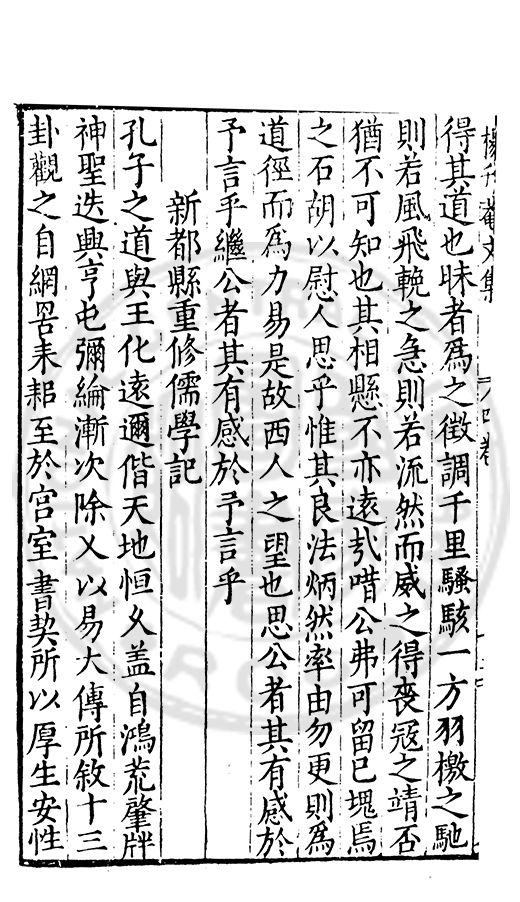 得其道也昧者爲之徵調千里騷駭一方羽檄之馳
則若風飛輓之急則若流然而威之得喪冦之靖否
猶不可知也其相懸不亦遠哉唶公弗可留已塊焉
之石胡以慰人思乎惟其良法炳然率由勿更則爲
道徑而爲力易是故西人之望也思公者其有感於
予言乎繼公者其有感於予言乎
新都縣重修儒學記
孔子之道與王化遠邇偕天地恒久盖自鴻荒肇牉
神聖迭興亨屯彌綸漸次除乂以易大傳所敘十三
卦觀之自網罟耒耜至於宫室書契所以厚生安性
文集